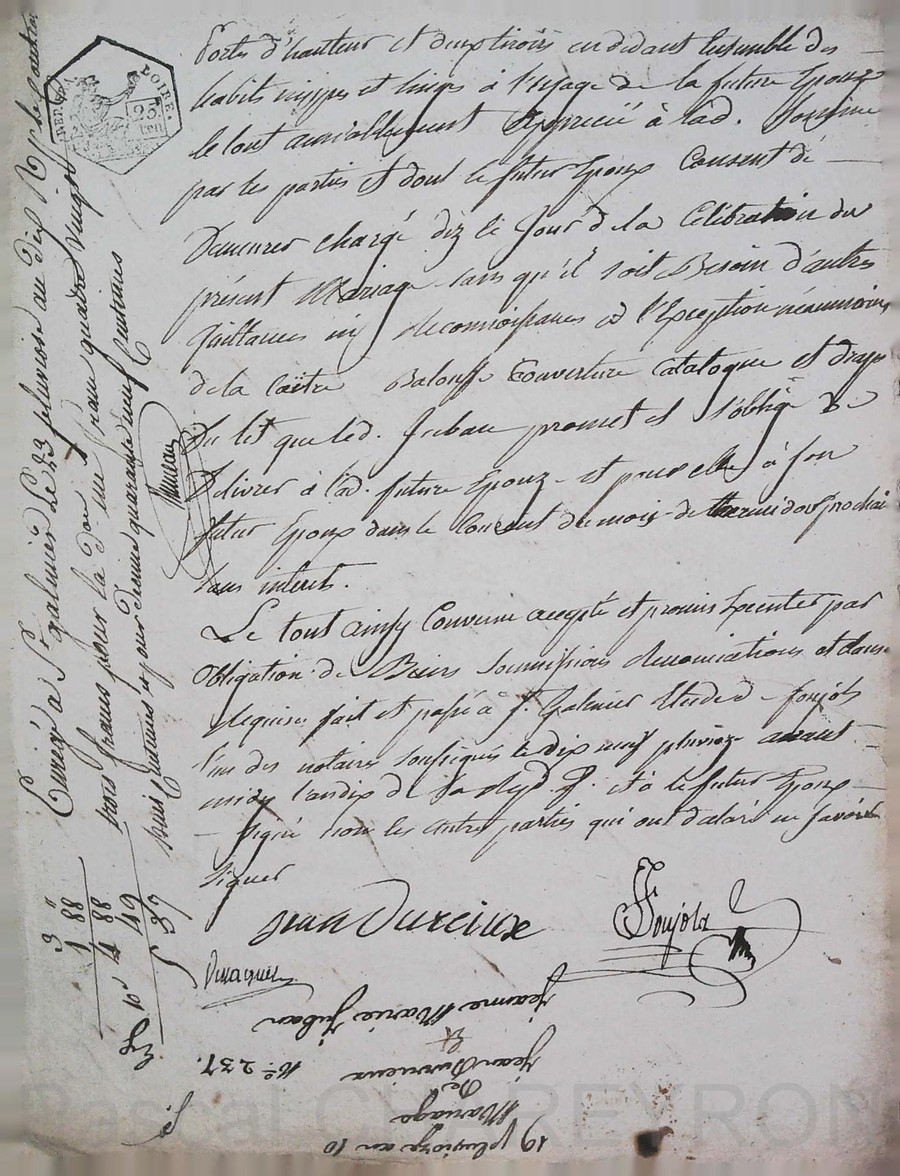 Portes d'hauteur et deux tiroirs en dedant Ensemble des
habits nippes et linges à l'usage de la future Epouze
le tout amiablement Apprecié à lad. Somme
par les parties et dont le futur Epoux Consent dé
Demeurer chargé diz le Jour de la Célébration du
présent Mariage sans qu'il soit Besoin d'autres
Quittances ni Reconnoissances à l'Exception néanmoins
de la Balouffe Couverture Catalogne et draps
du lit que led. Juban promet et s'oblige de
Délivrer à lad. future Epouze et pour elle à son
futur Epoux dans le Courant du mois de thermidor prochai
sans interet.
Le tout ainsy Convenu accepté et promis Executer par
Obligation de Biens Soumissions Renonciations et clause
Requise, fait et passé à St. Galmier Etude de Foujols
l'un des notaires soussignés le dix neuf pluvioze avant
midy l'an dix de la Rép. f. et à le futur Epoux
signé non les autres parties qui ont déclaré ne Savoir
Signer
Jean Durieux
Foujols
DEP. DE LA LOIRE.
25
cen
Enrégé à St galmier Le 23 pluviose an dix R
trois francs pour la dot un franc quatre vingt
huit Centimes et pour dixième quarante neuf Centimes
3 "
1 88
4 88
49
5 37
19 pluvioze an 10
Mariage
De
Jean Durrieux
Et
Jeanne Marie Juban
No. 237.